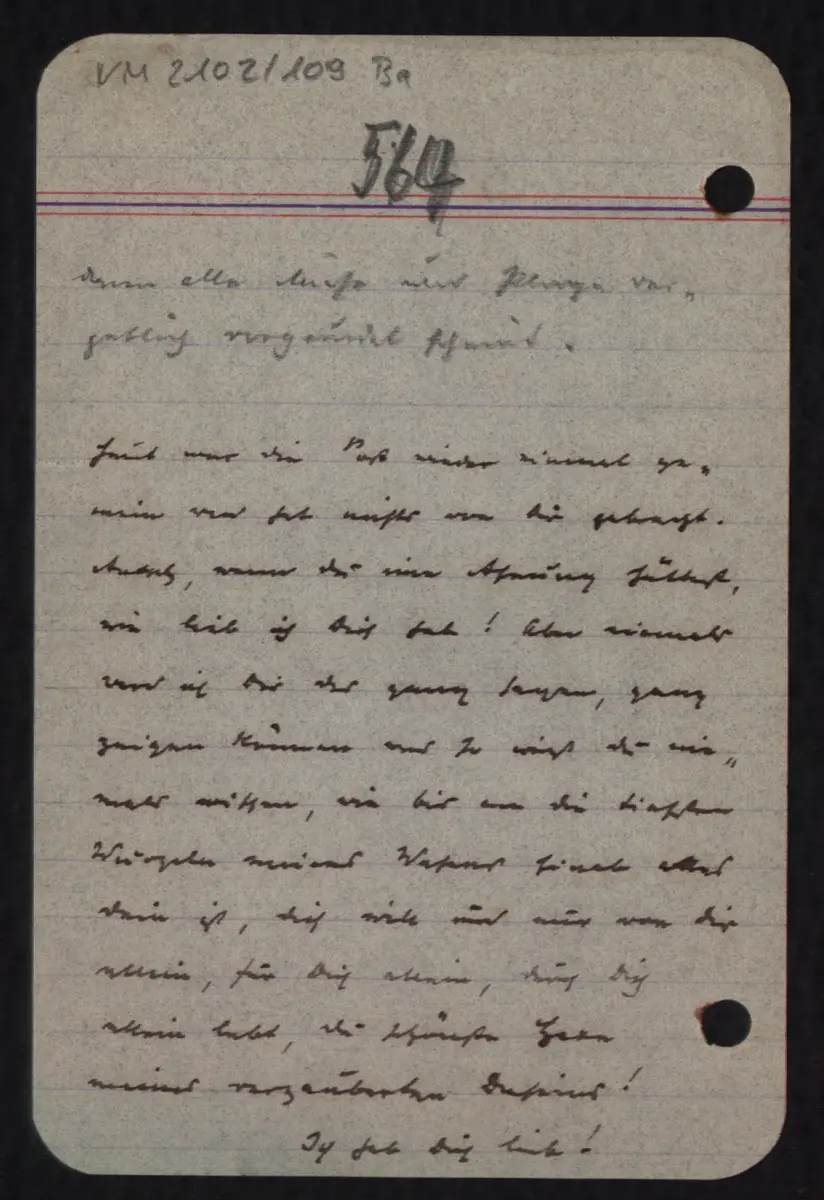 VM 2102/109 Ba
564
denn alle Mühe und Plage ver-
geblich vergeudet scheint.
Heut war die Post wieder einmal ge-
mein und hat nichts von Dir gebracht.
wenn du eine Ahnung hättest,
wie lieb ich Dich hab! Aber niemals
werd ich Dir das ganz sagen, ganz
zeigen können und so wirst du nie-
mals wissen, wie bis an die tiefsten
Wurzeln meines Wesens hinab alles
dein ist, dich will und nur von dir
allein, für Dich allein, durch Dich
allein lebt, du schönste Hexe
meines verzauberten Daseins!
Ich hab Dich lieb!